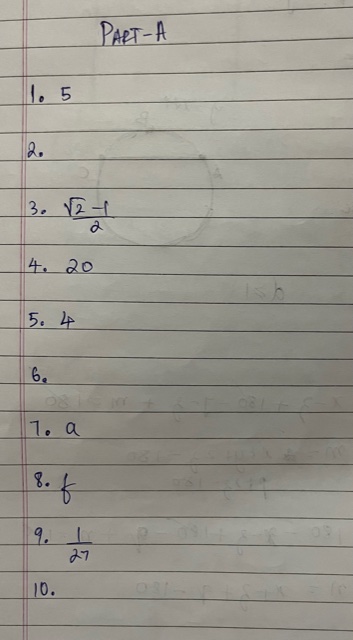 PART-A
1. 5
2.
3. √2 -1 / 2
4. 20
5. 4
6.
7. a
8. f
9. 1/27
10.